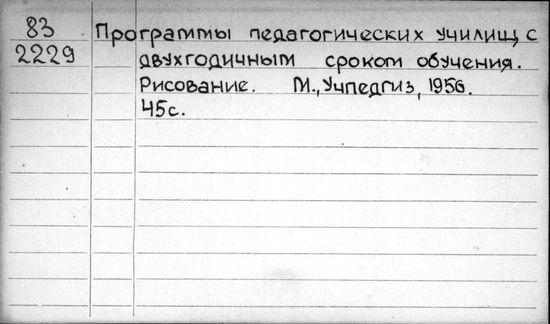 83 Программы педагогических училищ с
2229 двухгодичным сроком обучения.
Рисование. М., Учпедгиз, 1956.
45с.